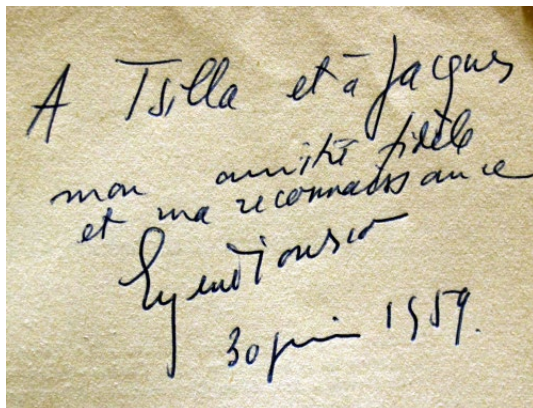 A Tsilla et à Jacques
mon amitié fidèle
et ma reconnaissance
Eugène Ionesco
30 juin 1959.